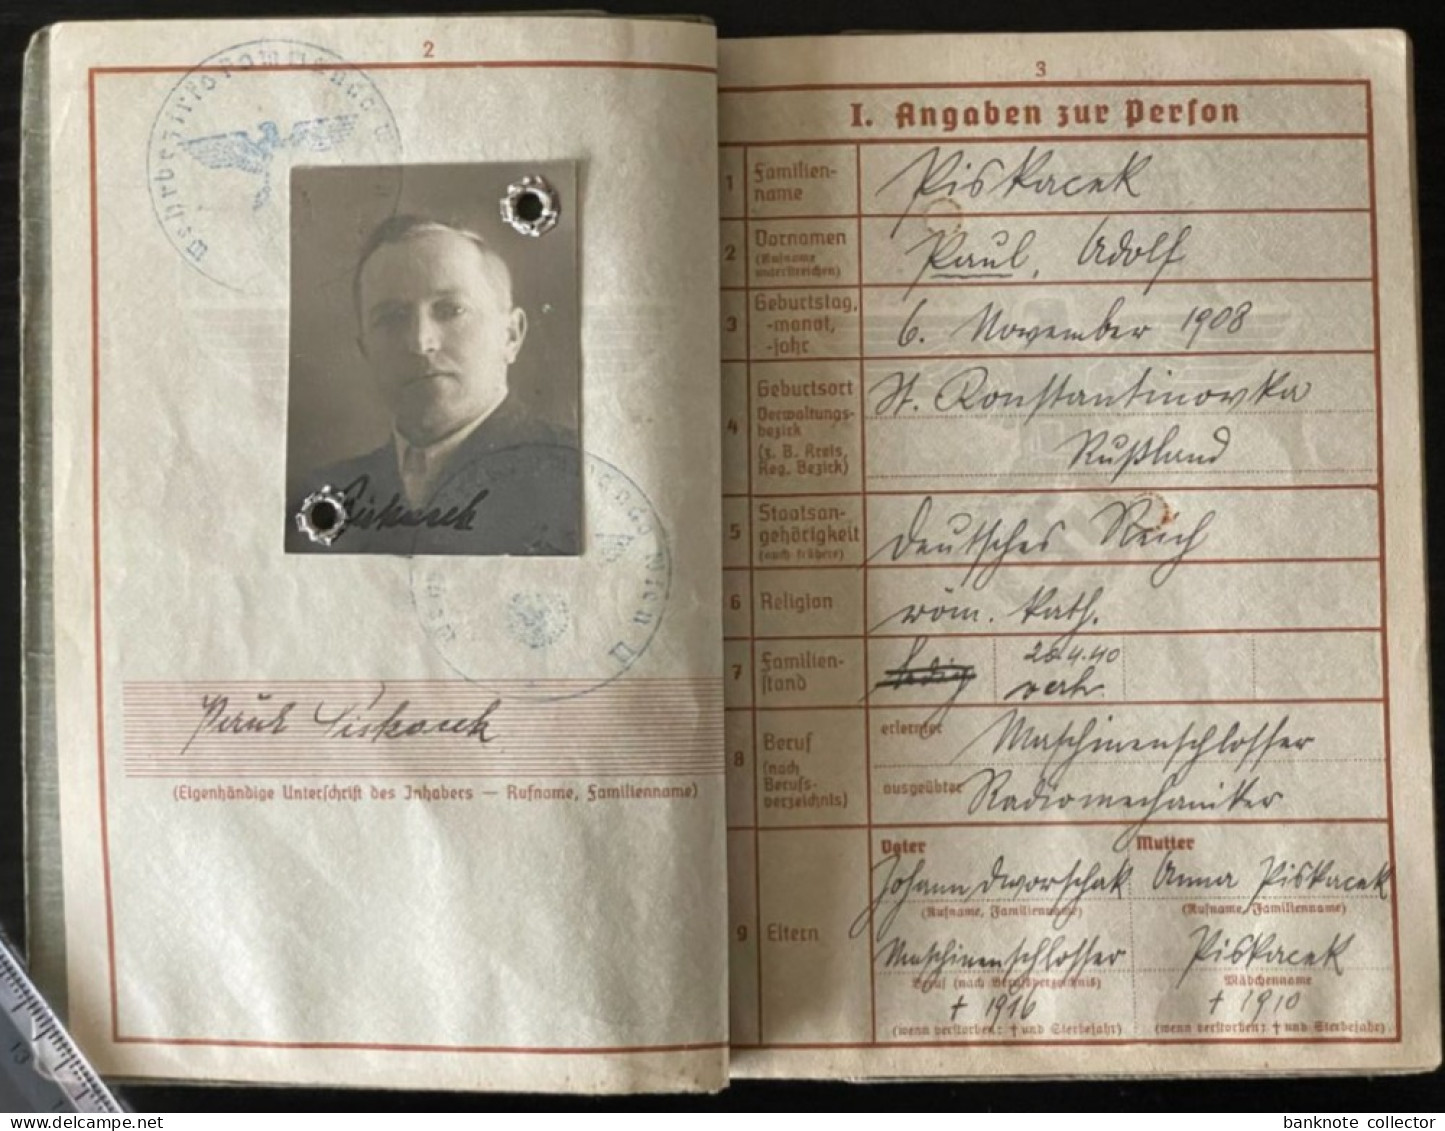 2
Wehrbezirkskommando Wien
Piskacek
Paul Piskacek
(Eigenhändige Unterschrift des Inhabers — Rufname, Familienname)
3
I. Angaben zur Person
1 Familien-
name
Piskacek
2 Vornamen
(Rufname
unterstreichen)
Paul, Adolf
3 Geburtstag,
-monat,
-jahr
6. November 1908
4 Geburtsort
Verwaltungs-
bezirk
(z. B. Kreis,
Reg. Bezirk)
St. Konstantinowka
Rußland
5 Staatsan-
gehörigkeit
(auch frühere)
Deutsches Reich
6 Religion
röm. kath.
7 Familien-
stand
ledig
20.4.40
verh.
8 Beruf
(nach
Berufs-
verzeichnis)
erlernter Maschinenschlosser
ausgeübter Radiomechaniker
9 Eltern
Vater
Johann Dworschak
(Rufname, Familienname)
Maschinenschlosser
Beruf (nach Berufsverzeichnis)
† 1916
(wenn verstorben: † und Sterbejahr)
Mutter
Anna Piskacek
(Rufname, Familienname)
Piskacek
Mädchenname
† 1910
(wenn verstorben: † und Sterbejahr)
banknote collector